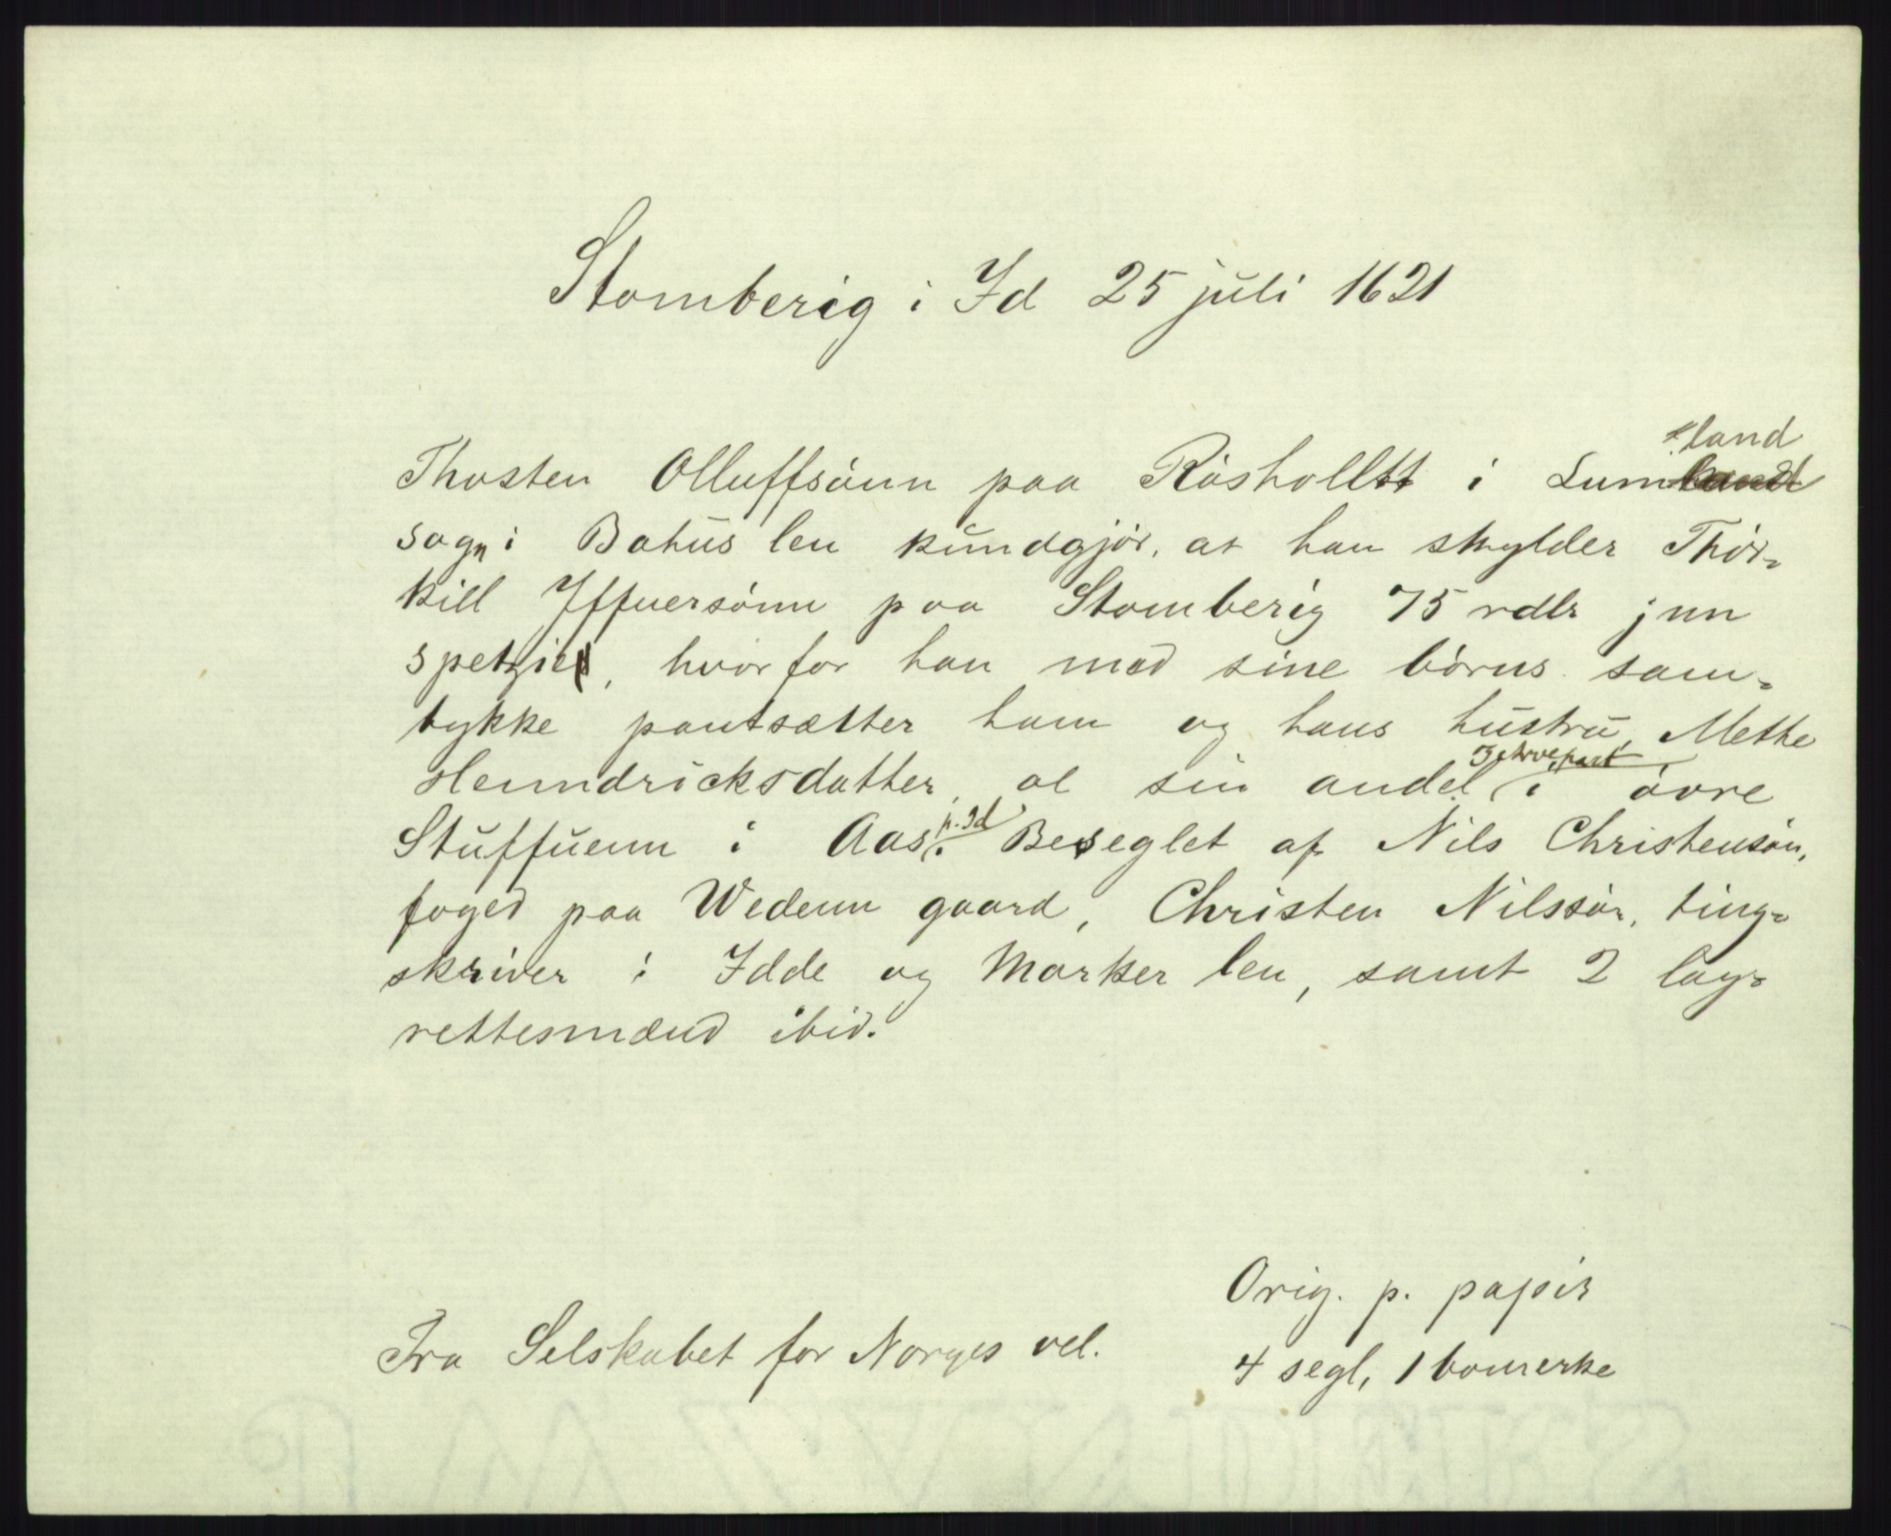 Stomberig i Id 25 juli 1621
Thosten Olluffsønn paa Røsholltt i Lumland
sogn i Bahus len kundgjør, at han skylder Thor-
kill Iffuersønn paa Stomberig 75 rdlr jnn
spetzie, hvorfor han med sine børns sam-
tykke pantsætter ham og hans hustru Methe
Henndricksdatter al sin andel i øvre
Stuffuenn i Aas p. Id. Beseglet af Nils Christensøn,
foged paa Wedenn gaard, Christen Nilssøn, ting-
skriver i Idde og Marker len, samt 2 lag-
rettesmænd ibid.
Orig. p. papir
Fra Selskabet for Norges vel.
4 segl, 1 bomerke